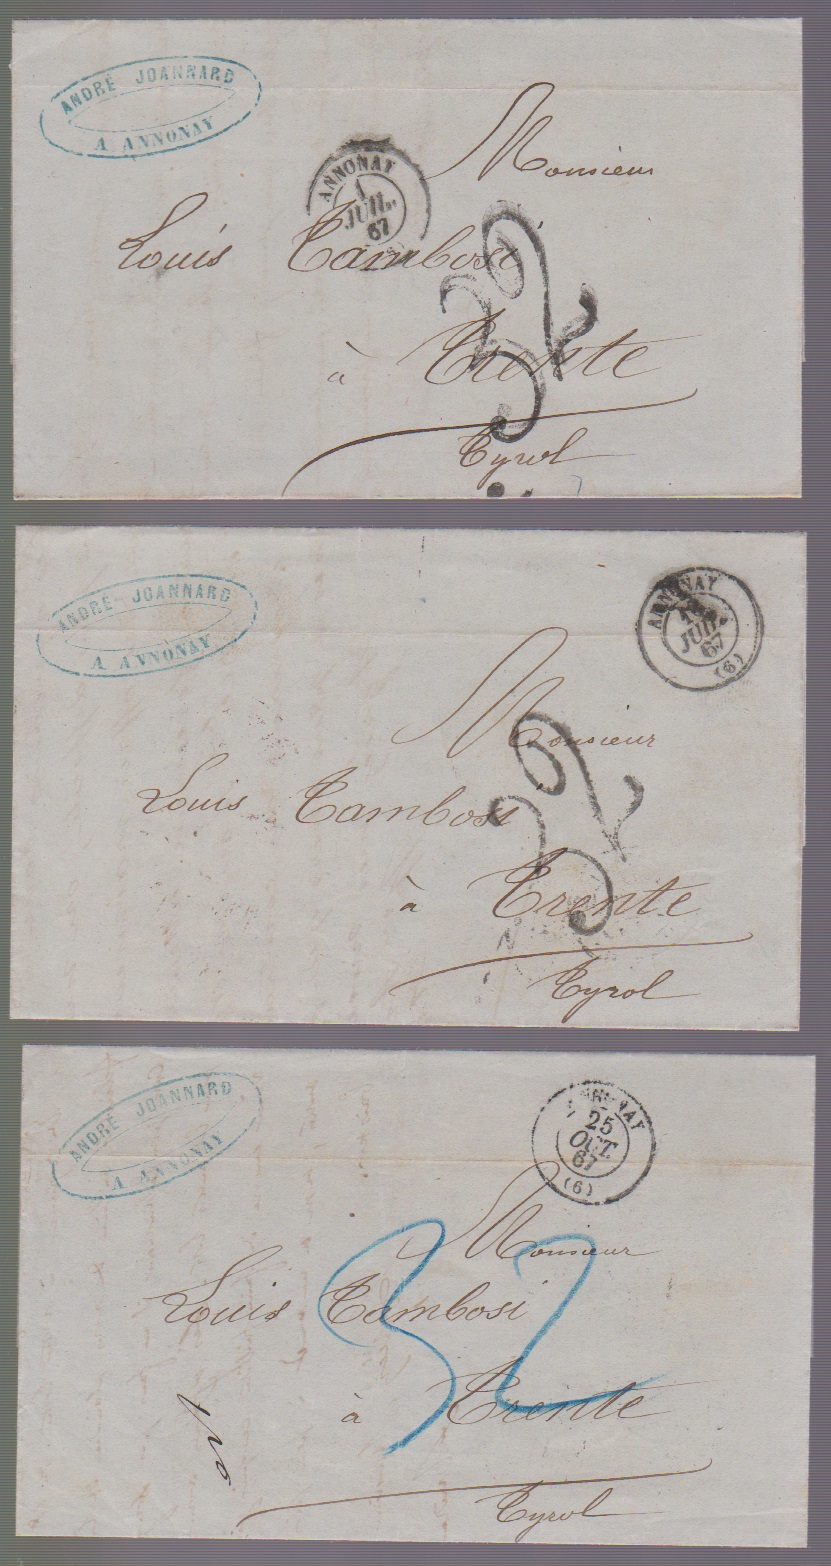 ANDRÉ JOANNARD
A ANNONAY
ANNONAY
1
JUIL.
67
(6)
Monsieur
Louis Tambosi
32
à Trente
Tyrol
ANDRÉ JOANNARD
A ANNONAY
ANNONAY
JUIL.
67
(6)
Monsieur
Louis Tambosi
32
à Trente
Tyrol
ANDRÉ JOANNARD
A ANNONAY
ANNONAY
25
OCT.
67
(6)
Monsieur
Louis Tambosi
32
à Trente
Tyrol